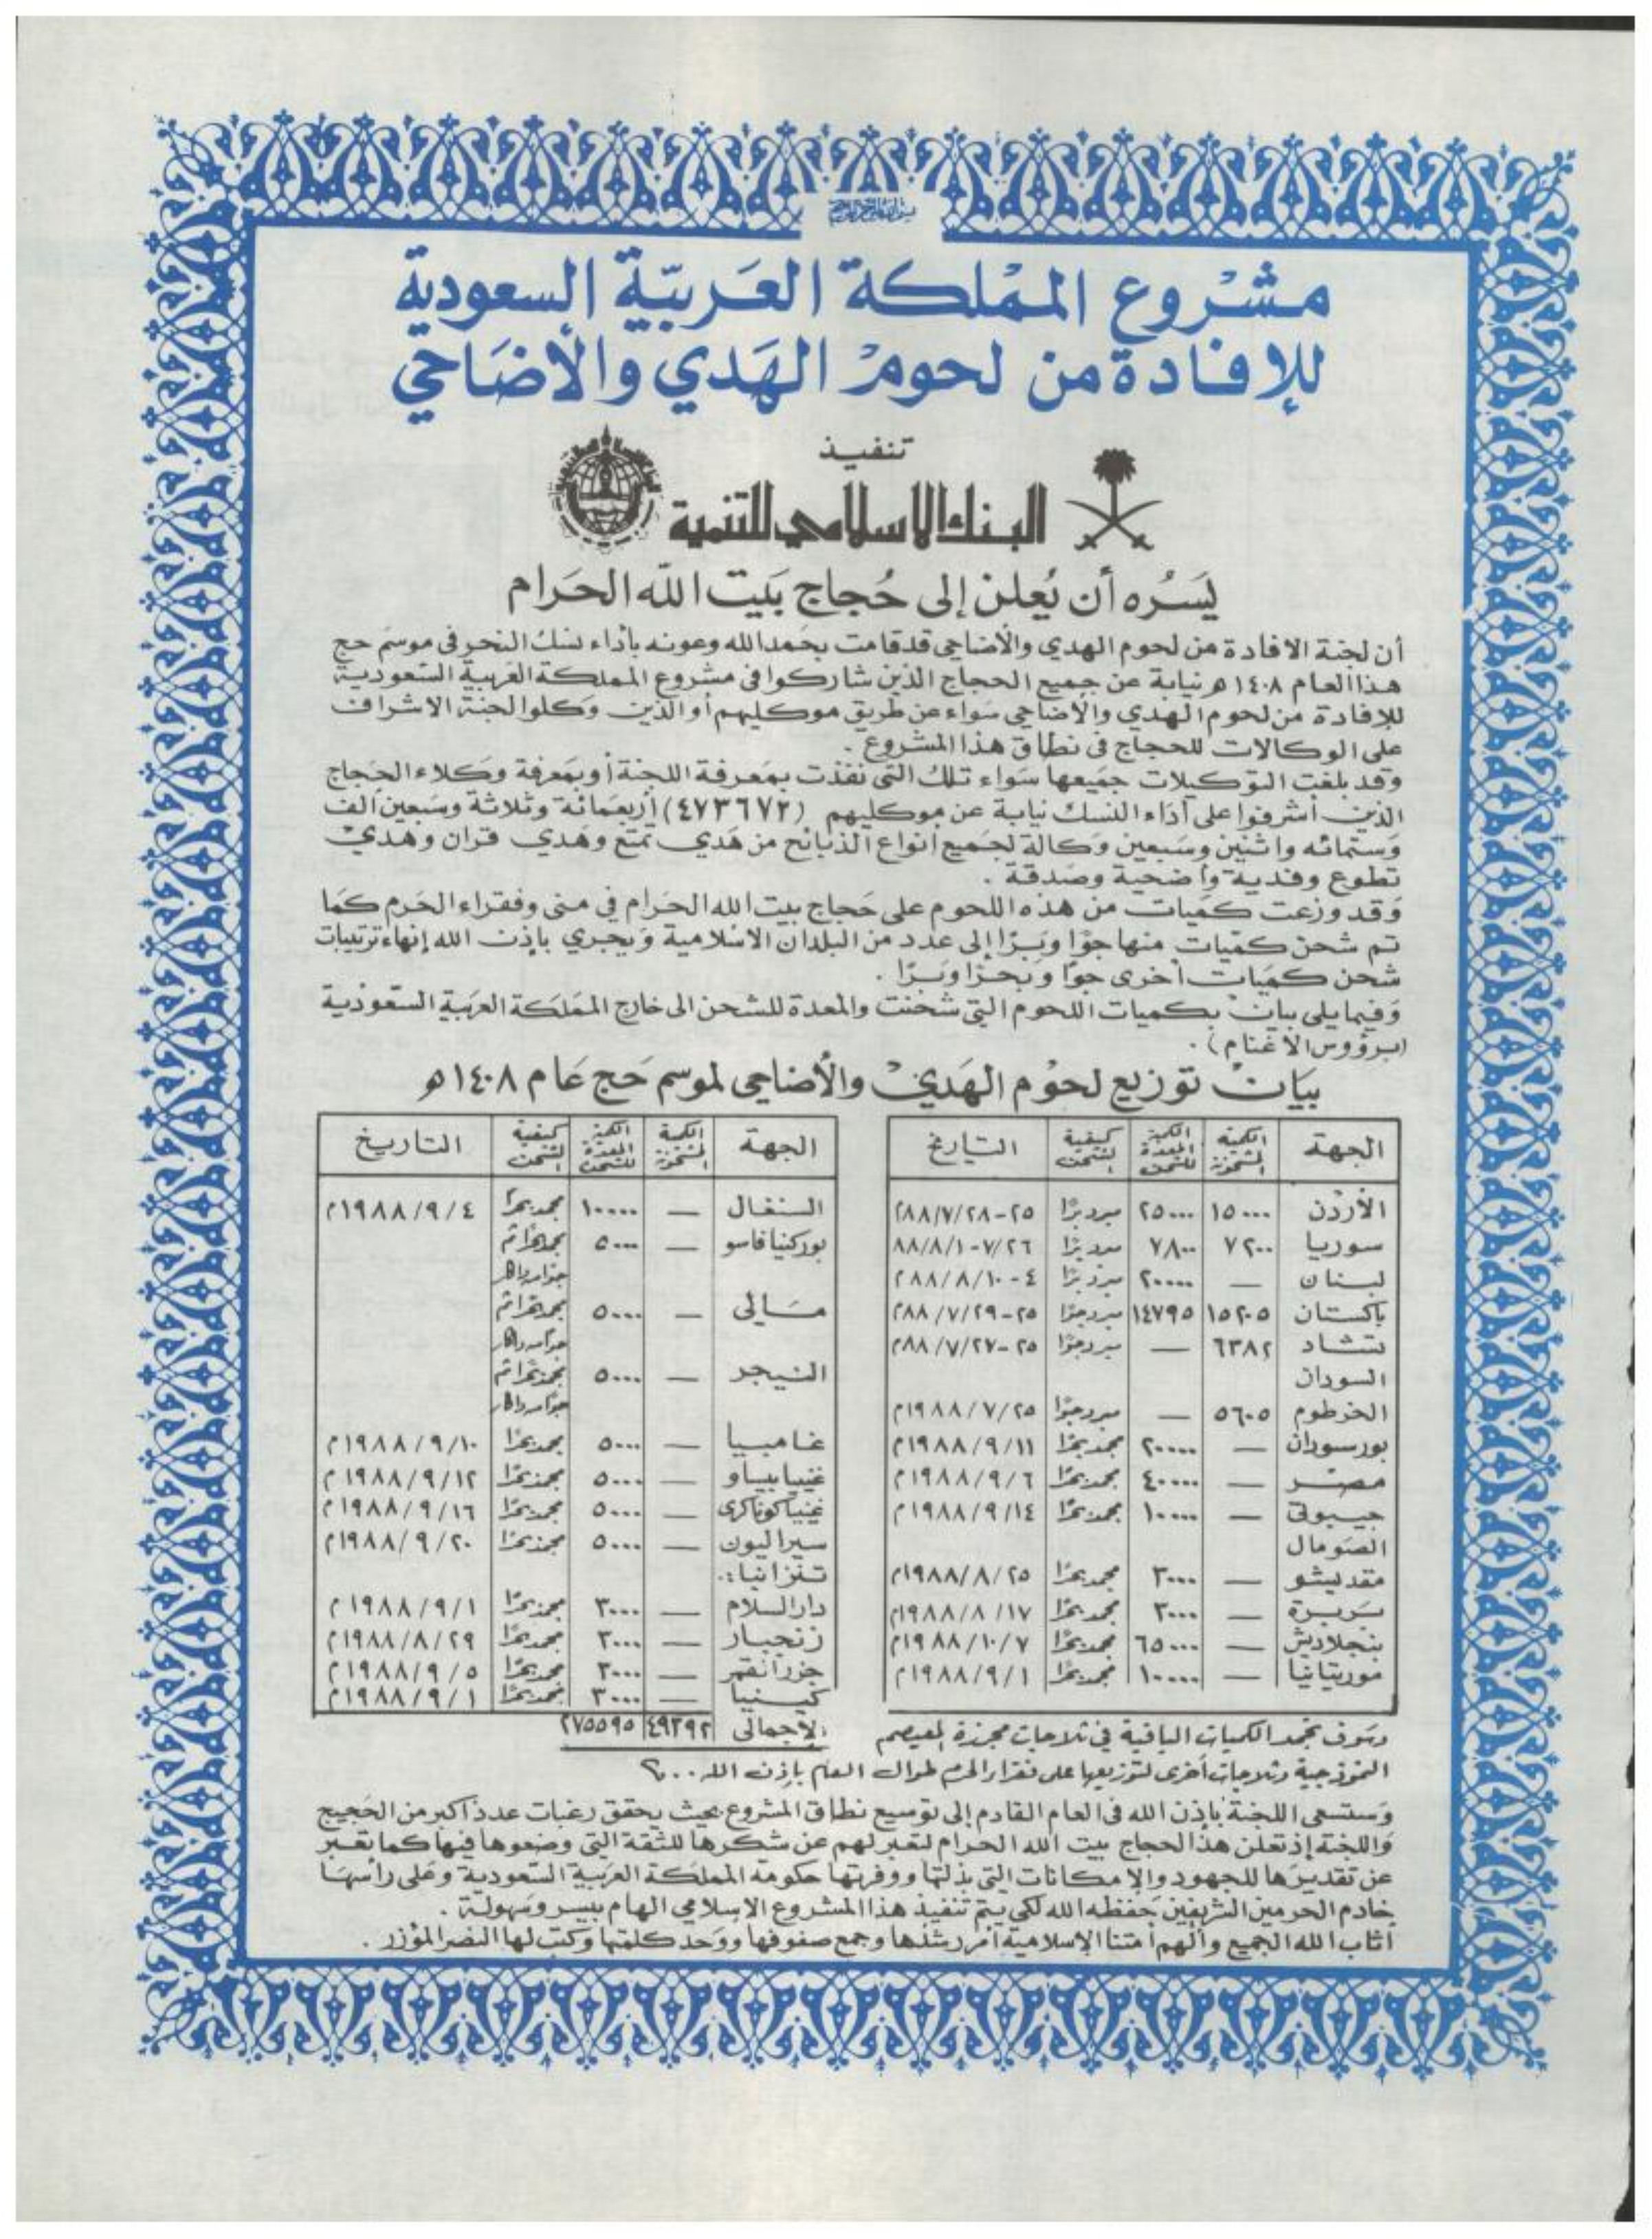 مشروع المملكة العربية السعودية
للإفادة من لحوم الهدي والأضاحي
تنفيذ
البنك الاسلامي للتنمية
يسره أن يعلن إلى حجاج بيت الله الحرام
أن لجنة الافادة من لحوم الهدي والأضاحي قد قامت بحمد الله وعونه بأداء نسك النحر في موسم حج
هذا العام ١٤٠٨ هـ نيابة عن جميع الحجاج الذين شاركوا في مشروع المملكة العربية السعودية
للإفادة من لحوم الهدي والأضاحي سواء عن طريق موكليهم أو الذين وكلوا لجنة الاشراف
على الوكالات للحجاج في نطاق هذا المشروع .
وقد بلغت التوكيلات جميعها سواء تلك التي نفذت بمعرفة اللجنة أو بمعرفة وكلاء الحجاج
الذين أشرفوا على أداء النسك نيابة عن موكليهم (٤٧٣٦٧٢) أربعمائة وثلاثة وسبعين ألف
وستمائه واثنين وسبعين وكالة لجميع أنواع الذبائح من هدي تمتع وهدي قران وهدي
تطوع وفدية وأضحية وصدقة .
وقد وزعت كميات من هذه اللحوم على حجاج بيت الله الحرام في منى وفقراء الحرم كما
تم شحن كميات منها جوا وبرا إلى عدد من البلدان الاسلامية ويجري بإذن الله إنهاء ترتيبات
شحن كميات أخرى جوا وبحرا وبرا .
وفيما يلي بيان بكميات اللحوم التي شحنت والمعدة للشحن الى خارج المملكة العربية السعودية
(برؤوس الأغنام) .
بيان توزيع لحوم الهدي والأضاحي لموسم حج عام ١٤٠٨ هـ
الجهة الكمية المشحونة الكمية المعدة للشحن كيفية الشحن التاريخ
الأردن ١٥٠٠٠ ٢٥٠٠٠ مبرد برًا ٢٥-٨٨/٧/٢٨م
سوريا ٧٢٠٠ ٧٨٠٠ مبرد برًا ٧/٢٦-٨٨/٨/١
لبنان — ٢٠٠٠٠ مبرد برًا ٤-٨٨/٨/١٠م
باكستان ١٥٢٠٥ ١٤٧٩٥ مبرد جوًا ٢٥-٨٨/٧/٢٩م
تشاد ٦٣٨٢ — مبرد جوًا ٢٥-٨٨/٧/٢٧م
السودان
الخرطوم ٥٦٠٥ — مبرد جوًا ١٩٨٨/٧/٢٥م
بورسودان — ٢٠٠٠٠ مجمد بحرًا ١٩٨٨/٩/١١م
مصر — ٤٠٠٠٠ مجمد بحرًا ١٩٨٨/٩/٦م
جيبوتي — ١٠٠٠٠ مجمد بحرًا ١٩٨٨/٩/١٤م
الصومال
مقديشو — ٣٠٠٠ مجمد بحرًا ١٩٨٨/٨/٢٥م
بربرة — ٢٠٠٠ مجمد بحرًا ١٩٨٨/٨/١٧م
بنجلاديش — ٦٥٠٠٠ مجمد بحرًا ١٩٨٨/١٠/٧م
موريتانيا — ١٠٠٠٠ مجمد بحرًا ١٩٨٨/٩/١م
الجهة الكمية المشحونة الكمية المعدة للشحن كيفية الشحن التاريخ
السنغال — ١٠٠٠٠ مجمد بحرًا ١٩٨٨/٩/٤م
بوركنيا فاسو — ٥٠٠٠ مجمد بحرًا ثم
جوًا من داكار
مالي — ٥٠٠٠ مجمد بحرًا ثم
جوًا من داكار
النيجر — ٥٠٠٠ مجمد بحرًا ثم
جوًا من داكار
غامبيا — ٥٠٠٠ مجمد بحرًا ١٩٨٨/٩/١٠م
غينيا بيساو — ٥٠٠٠ مجمد بحرًا ١٩٨٨/٩/١٢م
غينيا كوناكرى — ٥٠٠٠ مجمد بحرًا ١٩٨٨/٩/١٦م
سيراليون — ٥٠٠٠ مجمد بحرًا ١٩٨٨/٩/٢٠م
تنزانيا:
دار السلام — ٣٠٠٠ مجمد بحرًا ١٩٨٨/٩/١م
زنجبار — ٢٠٠٠ مجمد بحرًا ١٩٨٨/٨/٢٩م
جزر القمر — ٣٠٠٠ مجمد بحرًا ١٩٨٨/٩/٥م
كينيا — ٣٠٠٠ مجمد بحرًا ١٩٨٨/٩/١م
الإجمالي ٤٩٣٩٢ ٢٧٥٥٩٥
وسوف تجمد الكميات الباقية في ثلاجات مجزرة المعيصم
النموذجية وثلاجات أخرى لتوزيعها على فقراء الحرم طوال العام بإذن الله...
وستسعى اللجنة بإذن الله في العام القادم إلى توسيع نطاق المشروع بحيث يحقق رغبات عدد أكبر من الحجيج
واللجنة إذ تعلن هذا لحجاج بيت الله الحرام لتعبر لهم عن شكرها للثقة التي وضعوها فيها كما تعبر
عن تقديرها للجهود والإمكانات التي بذلتها ووفرتها حكومة المملكة العربية السعودية وعلى رأسها
خادم الحرمين الشريفين حفظه الله لكي يتم تنفيذ هذا المشروع الاسلامي الهام بيسر وسهولة .
أثاب الله الجميع وألهم أمتنا الإسلامية أمر رشدها وجمع صفوفها ووحد كلمتها وكتب لها النصر المؤزر .